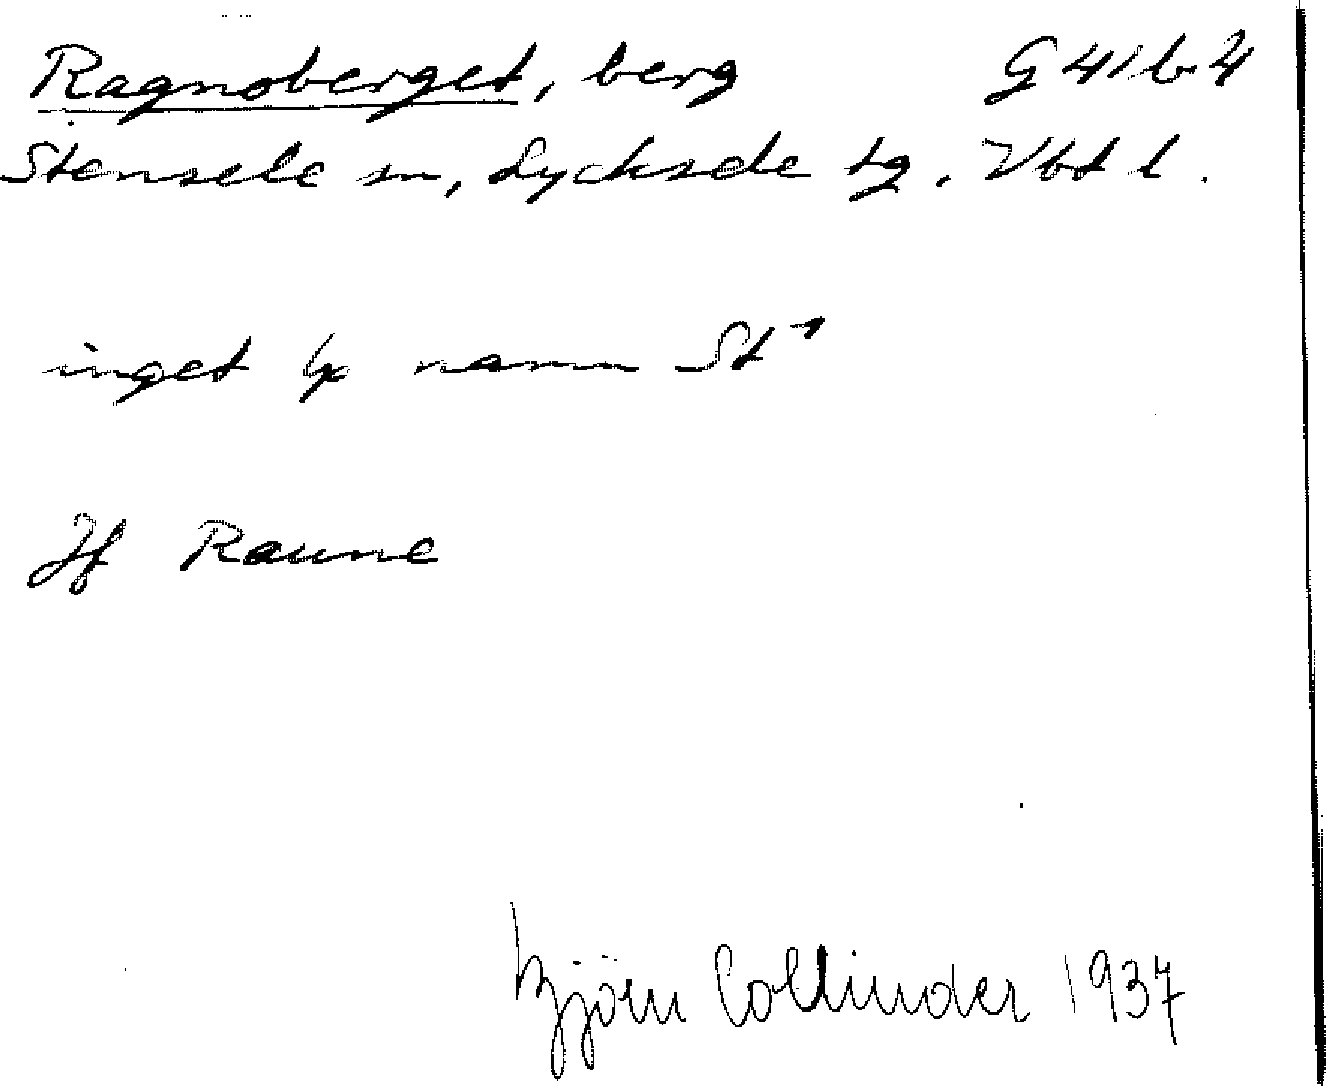 Ragnoberget, berg G41b4
Stensele sn, Lycksele tg. Vbt l.
inget lp namn St¹
Jf Raune
Björn Collinder 1937